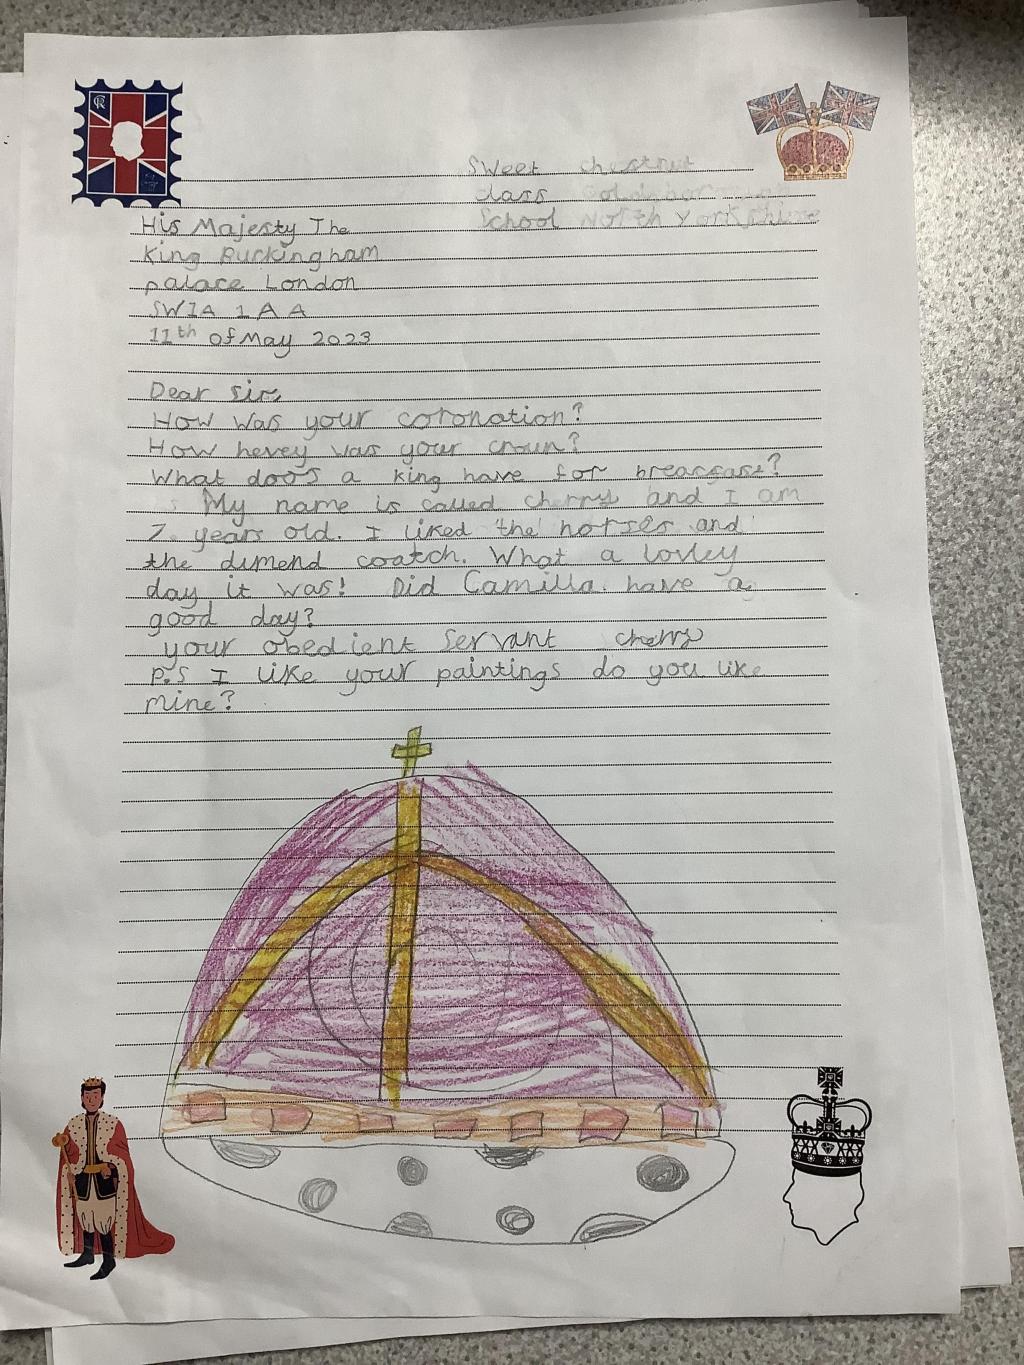 Sweet chestnut
class
School North Yorkshire
His Majesty The
King Buckingham
palace London
SW1A 1AA
11th of May 2023
Dear Sir,
How was your coronation?
How hevey was your crown?
What doos a king have for breacfast?
My name is called cherry and I am
7 years old. I liked the horses and
the dimend coatch. What a lovley
day it was! Did Camilla have a
good day?
your obedient servant cherry
P.S I like your paintings do you like
mine?